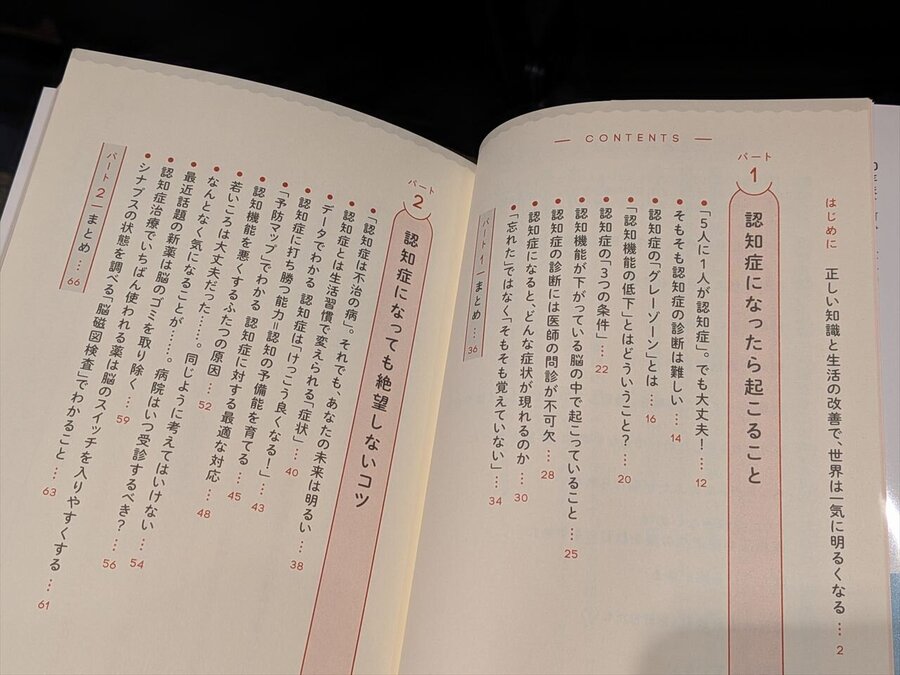 CONTENTS
はじめに 正しい知識と生活の改善で、世界は一気に明るくなる … 2
パート 1 認知症になったら起こること
● 「5人に1人が認知症」。でも大丈夫! … 12
● そもそも認知症の診断は難しい … 14
● 認知症の「グレーゾーン」とは … 16
● 「認知機能の低下」とはどういうこと? … 20
● 認知症の「3つの条件」 … 22
● 認知機能が下がっている脳の中で起こっていること … 25
● 認知症の診断には医師の問診が不可欠 … 28
● 認知症になると、どんな症状が現れるのか … 30
● 「忘れた」ではなく「そもそも覚えていない」 … 34
パート1|まとめ … 36
パート 2 認知症になっても絶望しないコツ
● 「認知症は不治の病」。それでも、あなたの未来は明るい … 38
● 認知症とは生活習慣で変えられる「症状」 … 40
● データでわかる 認知症は「けっこう良くなる!」 … 43
● 認知症に打ち勝つ能力=認知の予備能を育てる … 45
● 「予防マップ」でわかる 認知症に対する最適な対応 … 48
● 認知機能を悪くするふたつの原因 … 52
● 若いころは大丈夫だった……。同じように考えてはいけない … 54
● なんとなく気になることが……。病院はいつ受診するべき? … 56
● 最近話題の新薬は脳のゴミを取り除く … 59
● 認知症治療でいちばん使われる薬は脳のスイッチを入りやすくする … 61
● シナプスの状態を調べる「脳磁図検査」でわかること … 63
パート2|まとめ … 66